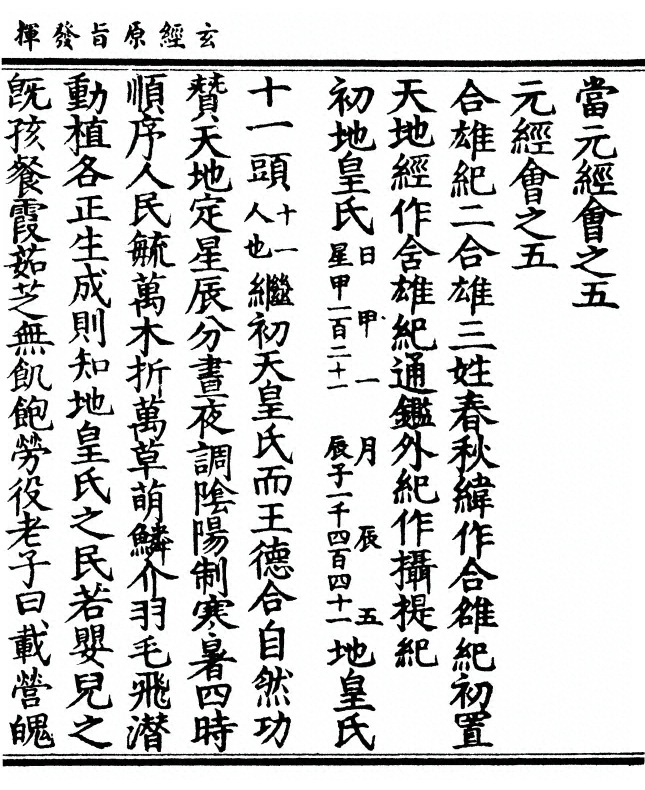 玄經原旨發揮
當元經會之五
元經會之五
合雄紀二合雄三姓春秋緯作合雒紀初置
天地經作舍雄紀通鑑外紀作攝提紀
初地皇氏日甲一月辰五星甲一百二十一辰子一千四百四十一地皇氏
十一頭十一人也繼初天皇氏而王德合自然功
贊天地定星辰分晝夜調陰陽制寒暑四時
順序人民毓萬木折萬草萌鱗介羽毛飛潜
動植各正生成則知地皇氏之民若嬰兒之
旣孩餐霞茹芝無飢飽勞役老子曰載營魄